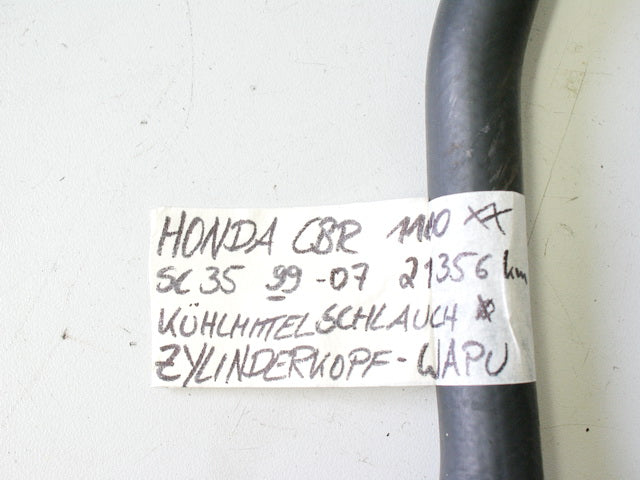 HONDA CBR 1100 XX
SC 35 99 - 07 21356 km
KÜHLMITTELSCHLAUCH
ZYLINDERKOPF - WAPU